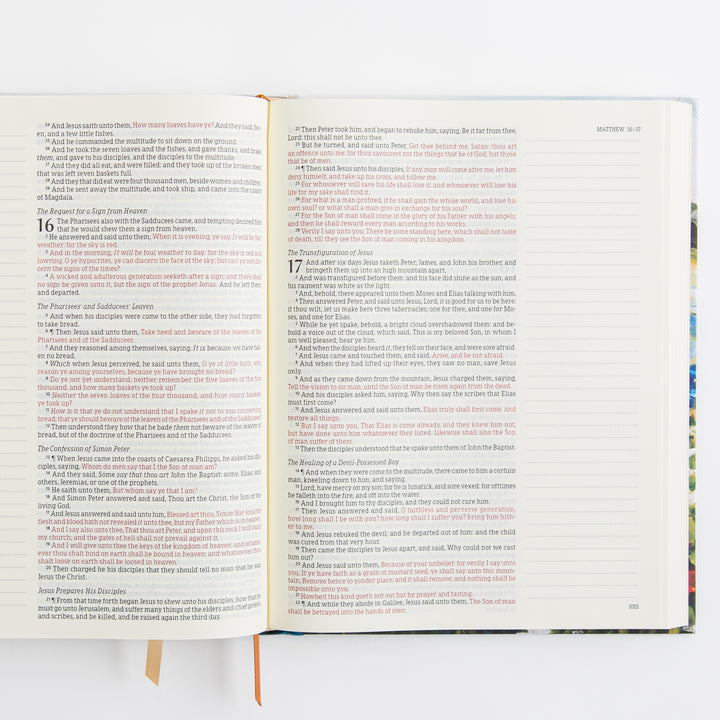 34 And Jesus saith unto them, How many loaves have ye? And they said, Sev-
en, and a few little fishes.
35 And he commanded the multitude to sit down on the ground.
36 And he took the seven loaves and the fishes, and gave thanks, and brake
them, and gave to his disciples, and the disciples to the multitude.
37 And they did all eat, and were filled: and they took up of the broken meat
that was left seven baskets full.
38 And they that did eat were four thousand men, beside women and children.
39 And he sent away the multitude, and took ship, and came into the coasts
of Magdala.
The Request for a Sign from Heaven
16 The Pharisees also with the Sadducees came, and tempting desired him
that he would shew them a sign from heaven.
2 He answered and said unto them, When it is evening, ye say, It will be fair
weather: for the sky is red.
3 And in the morning, It will be foul weather to day: for the sky is red and
lowring. O ye hypocrites, ye can discern the face of the sky; but can ye not dis-
cern the signs of the times?
4 A wicked and adulterous generation seeketh after a sign; and there shall
no sign be given unto it, but the sign of the prophet Jonas. And he left them,
and departed.
The Pharisees' and Sadducees' Leaven
5 And when his disciples were come to the other side, they had forgotten
to take bread.
6 ¶ Then Jesus said unto them, Take heed and beware of the leaven of the
Pharisees and of the Sadducees.
7 And they reasoned among themselves, saying, It is because we have tak-
en no bread.
8 Which when Jesus perceived, he said unto them, O ye of little faith, why
reason ye among yourselves, because ye have brought no bread?
9 Do ye not yet understand, neither remember the five loaves of the five
thousand, and how many baskets ye took up?
10 Neither the seven loaves of the four thousand, and how many baskets
ye took up?
11 How is it that ye do not understand that I spake it not to you concerning
bread, that ye should beware of the leaven of the Pharisees and of the Sadducees?
12 Then understood they how that he bade them not beware of the leaven of
bread, but of the doctrine of the Pharisees and of the Sadducees.
The Confession of Simon Peter
13 ¶ When Jesus came into the coasts of Caesarea Philippi, he asked his dis-
ciples, saying, Whom do men say that I the Son of man am?
14 And they said, Some say that thou art John the Baptist: some, Elias; and
others, Jeremias, or one of the prophets.
15 He saith unto them, But whom say ye that I am?
16 And Simon Peter answered and said, Thou art the Christ, the Son of the
living God.
17 And Jesus answered and said unto him, Blessed art thou, Simon Bar-jona: for
flesh and blood hath not revealed it unto thee, but my Father which is in heaven.
18 And I say also unto thee, That thou art Peter, and upon this rock I will build
my church; and the gates of hell shall not prevail against it.
19 And I will give unto thee the keys of the kingdom of heaven: and whatso-
ever thou shalt bind on earth shall be bound in heaven: and whatsoever thou
shalt loose on earth shall be loosed in heaven.
20 Then charged he his disciples that they should tell no man that he was
Jesus the Christ.
Jesus Prepares His Disciples
21 ¶ From that time forth began Jesus to shew unto his disciples, how that he
must go unto Jerusalem, and suffer many things of the elders and chief priests
and scribes, and be killed, and be raised again the third day.
MATTHEW 16–17
22 Then Peter took him, and began to rebuke him, saying, Be it far from thee,
Lord: this shall not be unto thee.
23 But he turned, and said unto Peter, Get thee behind me, Satan: thou art
an offence unto me: for thou savourest not the things that be of God, but those
that be of men.
24 ¶ Then said Jesus unto his disciples, If any man will come after me, let him
deny himself, and take up his cross, and follow me.
25 For whosoever will save his life shall lose it: and whosoever will lose his
life for my sake shall find it.
26 For what is a man profited, if he shall gain the whole world, and lose his
own soul? or what shall a man give in exchange for his soul?
27 For the Son of man shall come in the glory of his Father with his angels;
and then he shall reward every man according to his works.
28 Verily I say unto you, There be some standing here, which shall not taste
of death, till they see the Son of man coming in his kingdom.
The Transfiguration of Jesus
17 And after six days Jesus taketh Peter, James, and John his brother, and
bringeth them up into an high mountain apart,
2 And was transfigured before them: and his face did shine as the sun, and
his raiment was white as the light.
3 And, behold, there appeared unto them Moses and Elias talking with him.
4 Then answered Peter, and said unto Jesus, Lord, it is good for us to be here:
if thou wilt, let us make here three tabernacles; one for thee, and one for Mo-
ses, and one for Elias.
5 While he yet spake, behold, a bright cloud overshadowed them: and be-
hold a voice out of the cloud, which said, This is my beloved Son, in whom I
am well pleased; hear ye him.
6 And when the disciples heard it, they fell on their face, and were sore afraid.
7 And Jesus came and touched them, and said, Arise, and be not afraid.
8 And when they had lifted up their eyes, they saw no man, save Jesus
only.
9 And as they came down from the mountain, Jesus charged them, saying,
Tell the vision to no man, until the Son of man be risen again from the dead.
10 And his disciples asked him, saying, Why then say the scribes that Elias
must first come?
11 And Jesus answered and said unto them, Elias truly shall first come, and
restore all things.
12 But I say unto you, That Elias is come already, and they knew him not,
but have done unto him whatsoever they listed. Likewise shall also the Son
of man suffer of them.
13 Then the disciples understood that he spake unto them of John the Baptist.
The Healing of a Devil-Possessed Boy
14 ¶ And when they were come to the multitude, there came to him a certain
man, kneeling down to him, and saying,
15 Lord, have mercy on my son: for he is lunatick, and sore vexed: for ofttimes
he falleth into the fire, and oft into the water.
16 And I brought him to thy disciples, and they could not cure him.
17 Then Jesus answered and said, O faithless and perverse generation,
how long shall I be with you? how long shall I suffer you? bring him hith-
er to me.
18 And Jesus rebuked the devil; and he departed out of him: and the child
was cured from that very hour.
19 Then came the disciples to Jesus apart, and said, Why could not we cast
him out?
20 And Jesus said unto them, Because of your unbelief: for verily I say unto
you, If ye have faith as a grain of mustard seed, ye shall say unto this moun-
tain, Remove hence to yonder place; and it shall remove; and nothing shall be
impossible unto you.
21 Howbeit this kind goeth not out but by prayer and fasting.
22 ¶ And while they abode in Galilee, Jesus said unto them, The Son of man
shall be betrayed into the hands of men:
1015